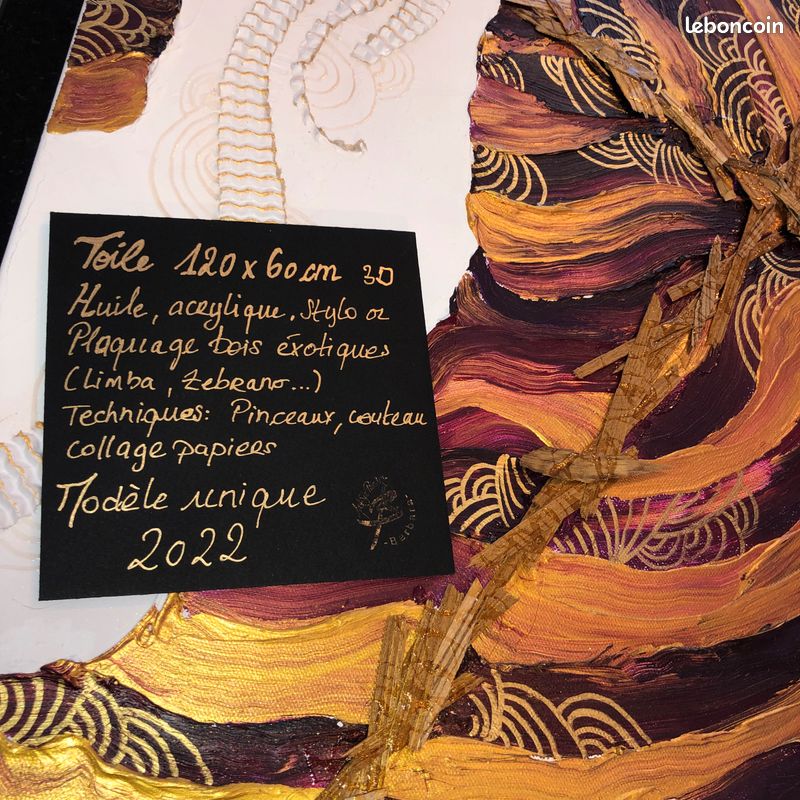 leboncoin
Toile 120 x 60 cm 3D
Huile, acrylique, Stylo or
Plaquage bois éxotiques
(Limba, Zebrano...)
Techniques: Pinceaux, couteau
collage papiers
Modèle unique
2022